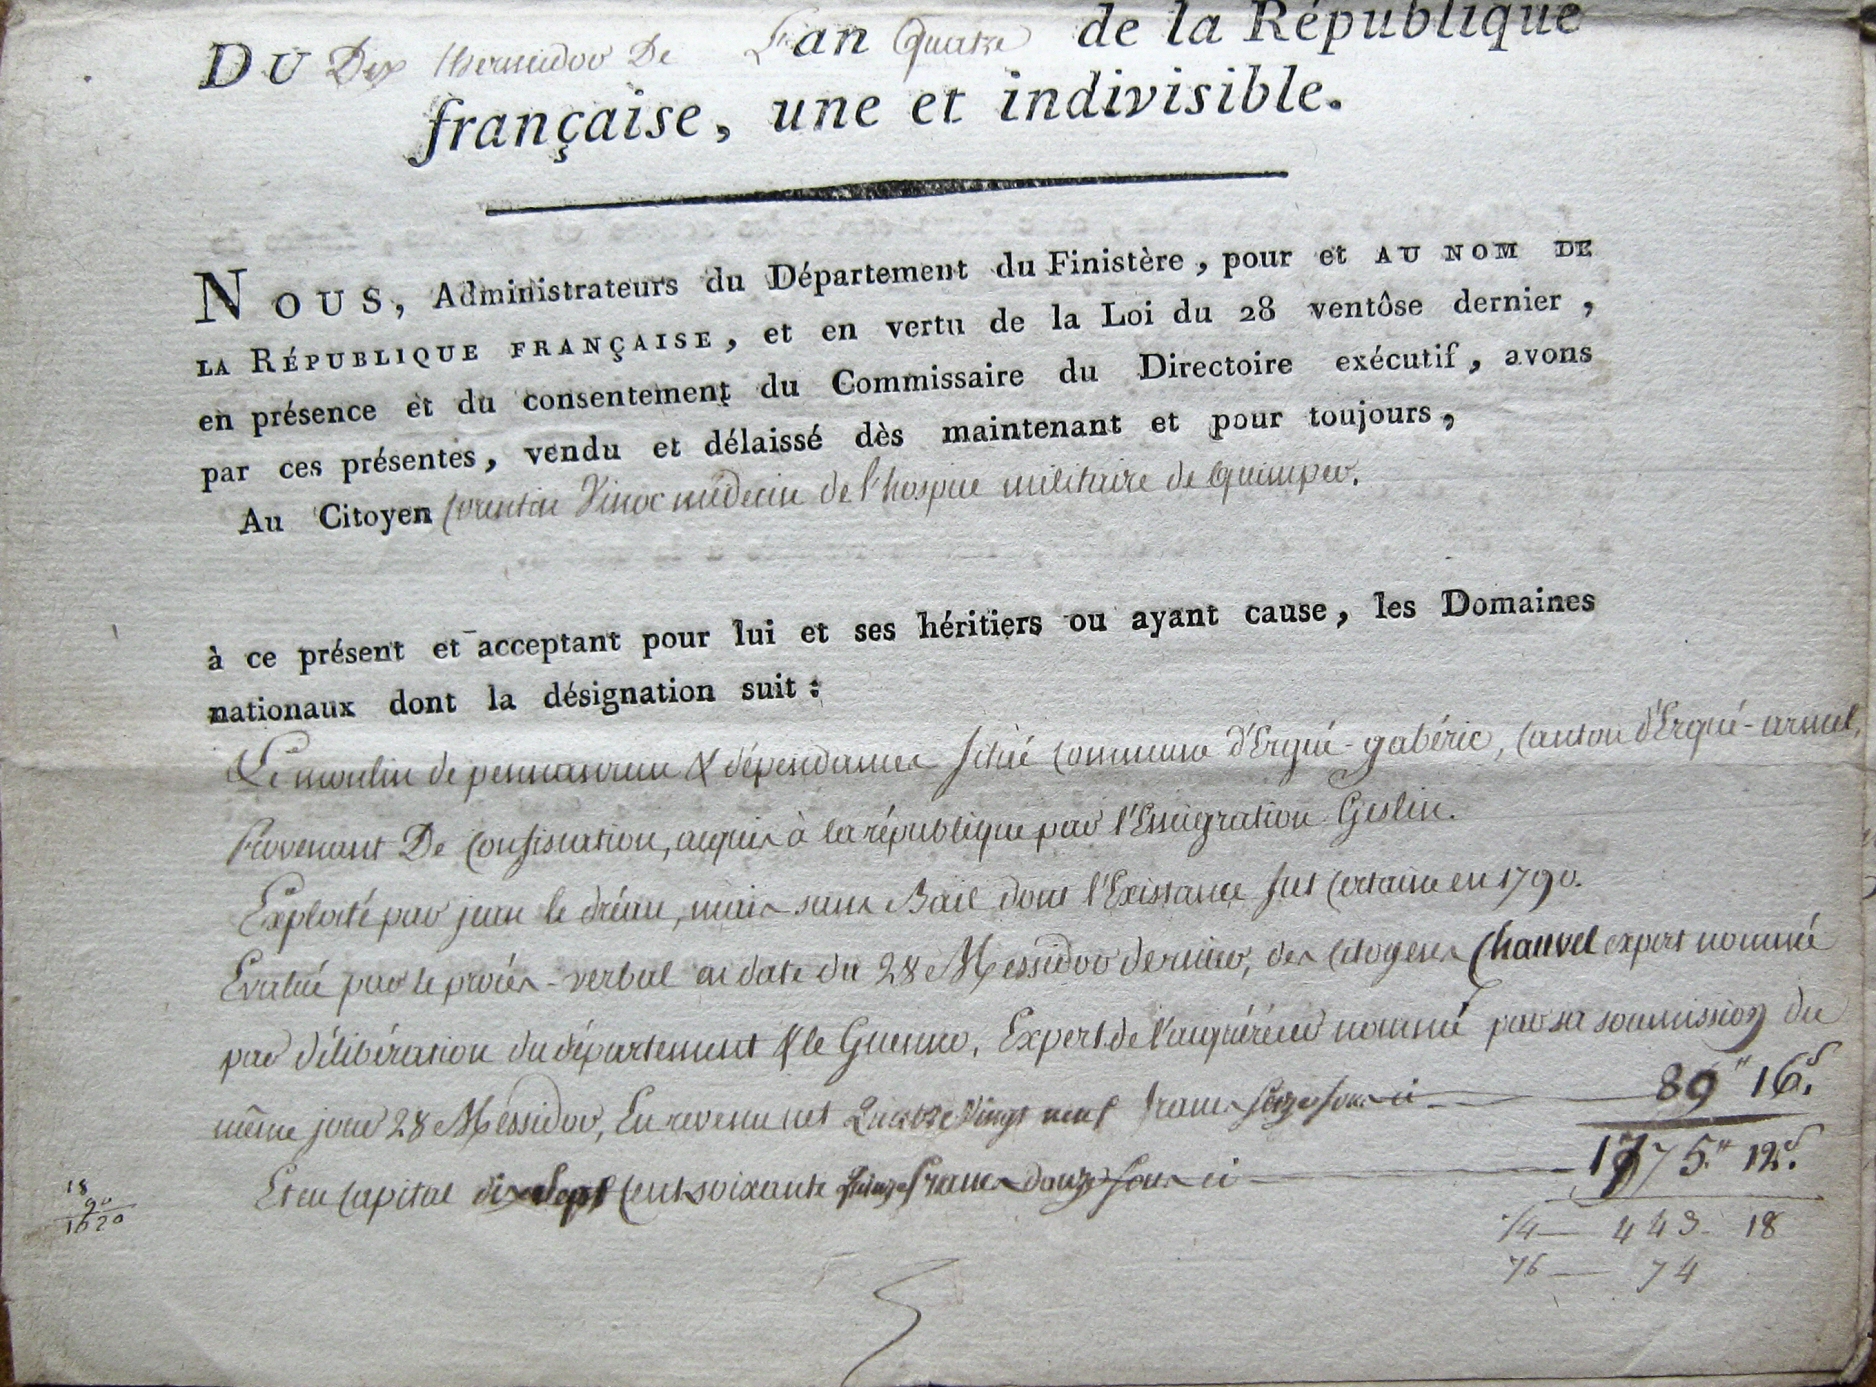 DU Dix thermidor De L'an Quatre de la République
française, une et indivisible.
NOUS, Administrateurs du Département du Finistère, pour et AU NOM DE
LA RÉPUBLIQUE FRANÇAISE, et en vertu de la Loi du 28 ventôse dernier,
en présence et du consentement du Commissaire du Directoire exécutif, avons
par ces présentes, vendu et délaissé dès maintenant et pour toujours,
Au Citoyen Corentin Vinoc médecin de l'hospice militaire de Quimper.
à ce présent et acceptant pour lui et ses héritiers ou ayant cause, les Domaines
nationaux dont la désignation suit :
Le moulin de pennanreun & dépendances situé Commune d'Ergué-gabéric, Canton d'Ergué-armel,
Provenant De Confiscation, acquis à la république par l'Emigration Geslin.
Exploité par jean le dréau, mais sans Bail dont l'Existance fut Certaine en 1790.
Evalué par le procès-verbal en date du 28 Messidor dernier, des Citoyens Chauvel expert nommé
par délibération du département & le Guenno, Expert de l'acquéreur nommé par sa soumission du
même jour 28 Messidor, En revenu net Quatre Vingt neuf francs seize sous ci 89" 16s.
Et en Capital dix Sept Cent soixante Quinze francs douze sous ci 1775" 12s.
18
90
1620
1/4 — 443 - 18
76 — 74